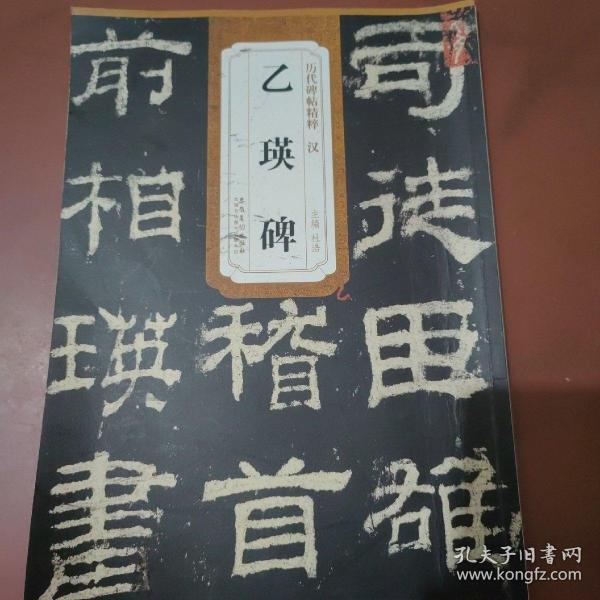 司徒臣雄
稽首
前相瑛書
历代碑帖精粹 汉
乙瑛碑
主编 杜浩
孔夫子旧书网
www.kongfz.com